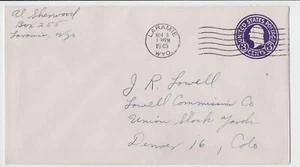 Al Sherwood
Box 255
Laramie, Wyo
LARAMIE
1 PM
1945
WYO.
UNITED STATES POSTAGE
3 CENTS 3
J. R. Lowell
Lowell Commission Co
Union Stock Yards
Denver 16, Colo